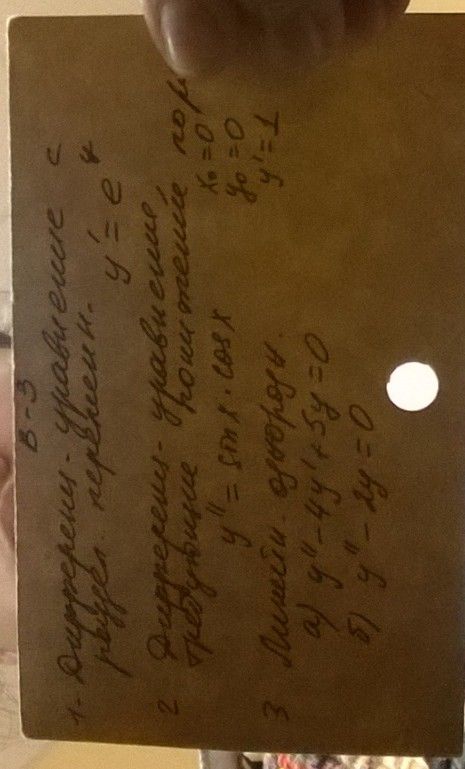 В-3
1. Дифференц. уравнение с
раздел. переменн.
y' = e^y
2 Дифференц. уравнение,
требующие понижений пор
y'' = sin x · cos x
x₀ = 0
y₀ = 0
y' = 1
3 Линейн. однородн.
а) y'' - 4y' + 5y = 0
б) y'' - 2y = 0